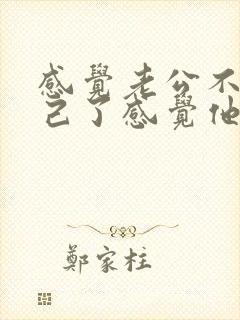 感覺老公不
己了感覺他
鄭家柱